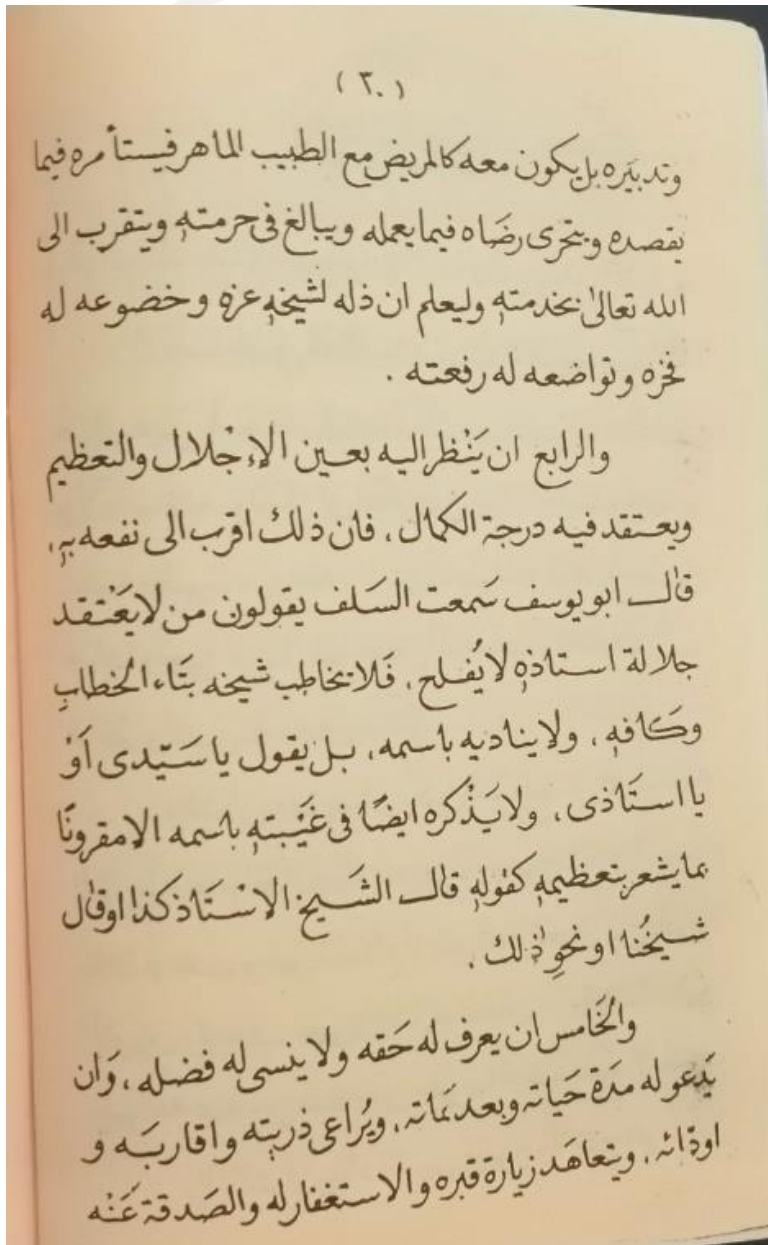 (٣٠)
وتدبيره بل يكون معه كالمريض مع الطبيب الماهر فيستأمره فيما
يقصده ويتحرى رضَاه فيما يعمله ويبالغ فى حرمتهِ ويتقرب الى
الله تعالىٰ بخدمتهِ وليعلم ان ذله لشيخهِ عزه وخضوعه له
فخره وتواضعه له رفعته .
والرابع ان يَنْظر اليه بعين الإِجْلال والتعظيم
ويعتقد فيه درجة الكمال ، فان ذلك اقرب الى نفعه بهِ،
قال ابو يوسف سَمعت السَلف يقولون من لايَعْتقد
جلالة استاذهِ لايُفلح ، فَلا يخاطب شيخه بتَاء الخطابِ
وكَافهِ ، ولا يناديه باسمه ، بل يقول ياسَيّدى اَوْ
يا استَاذى ، ولا يَذْكره ايضًا فى غَيْبتهِ باسمه الا مقرونًا
بما يشعر بتعظيمهِ كقولهِ قال الشَيخ الاسْتَاذ كذا اوقال
شيخُنا او نحوِ ذٰلك .
والخَامس ان يعرف له حَقه ولا ينسى له فضله ، وَان
يَدعو له مدَة حَياته وبعد مَماته ، ويُراعى ذريته واقاربَه و
اودّائه ، ويتعاهَد زيارة قبره والاستغفار له والصَدقة عَنْه